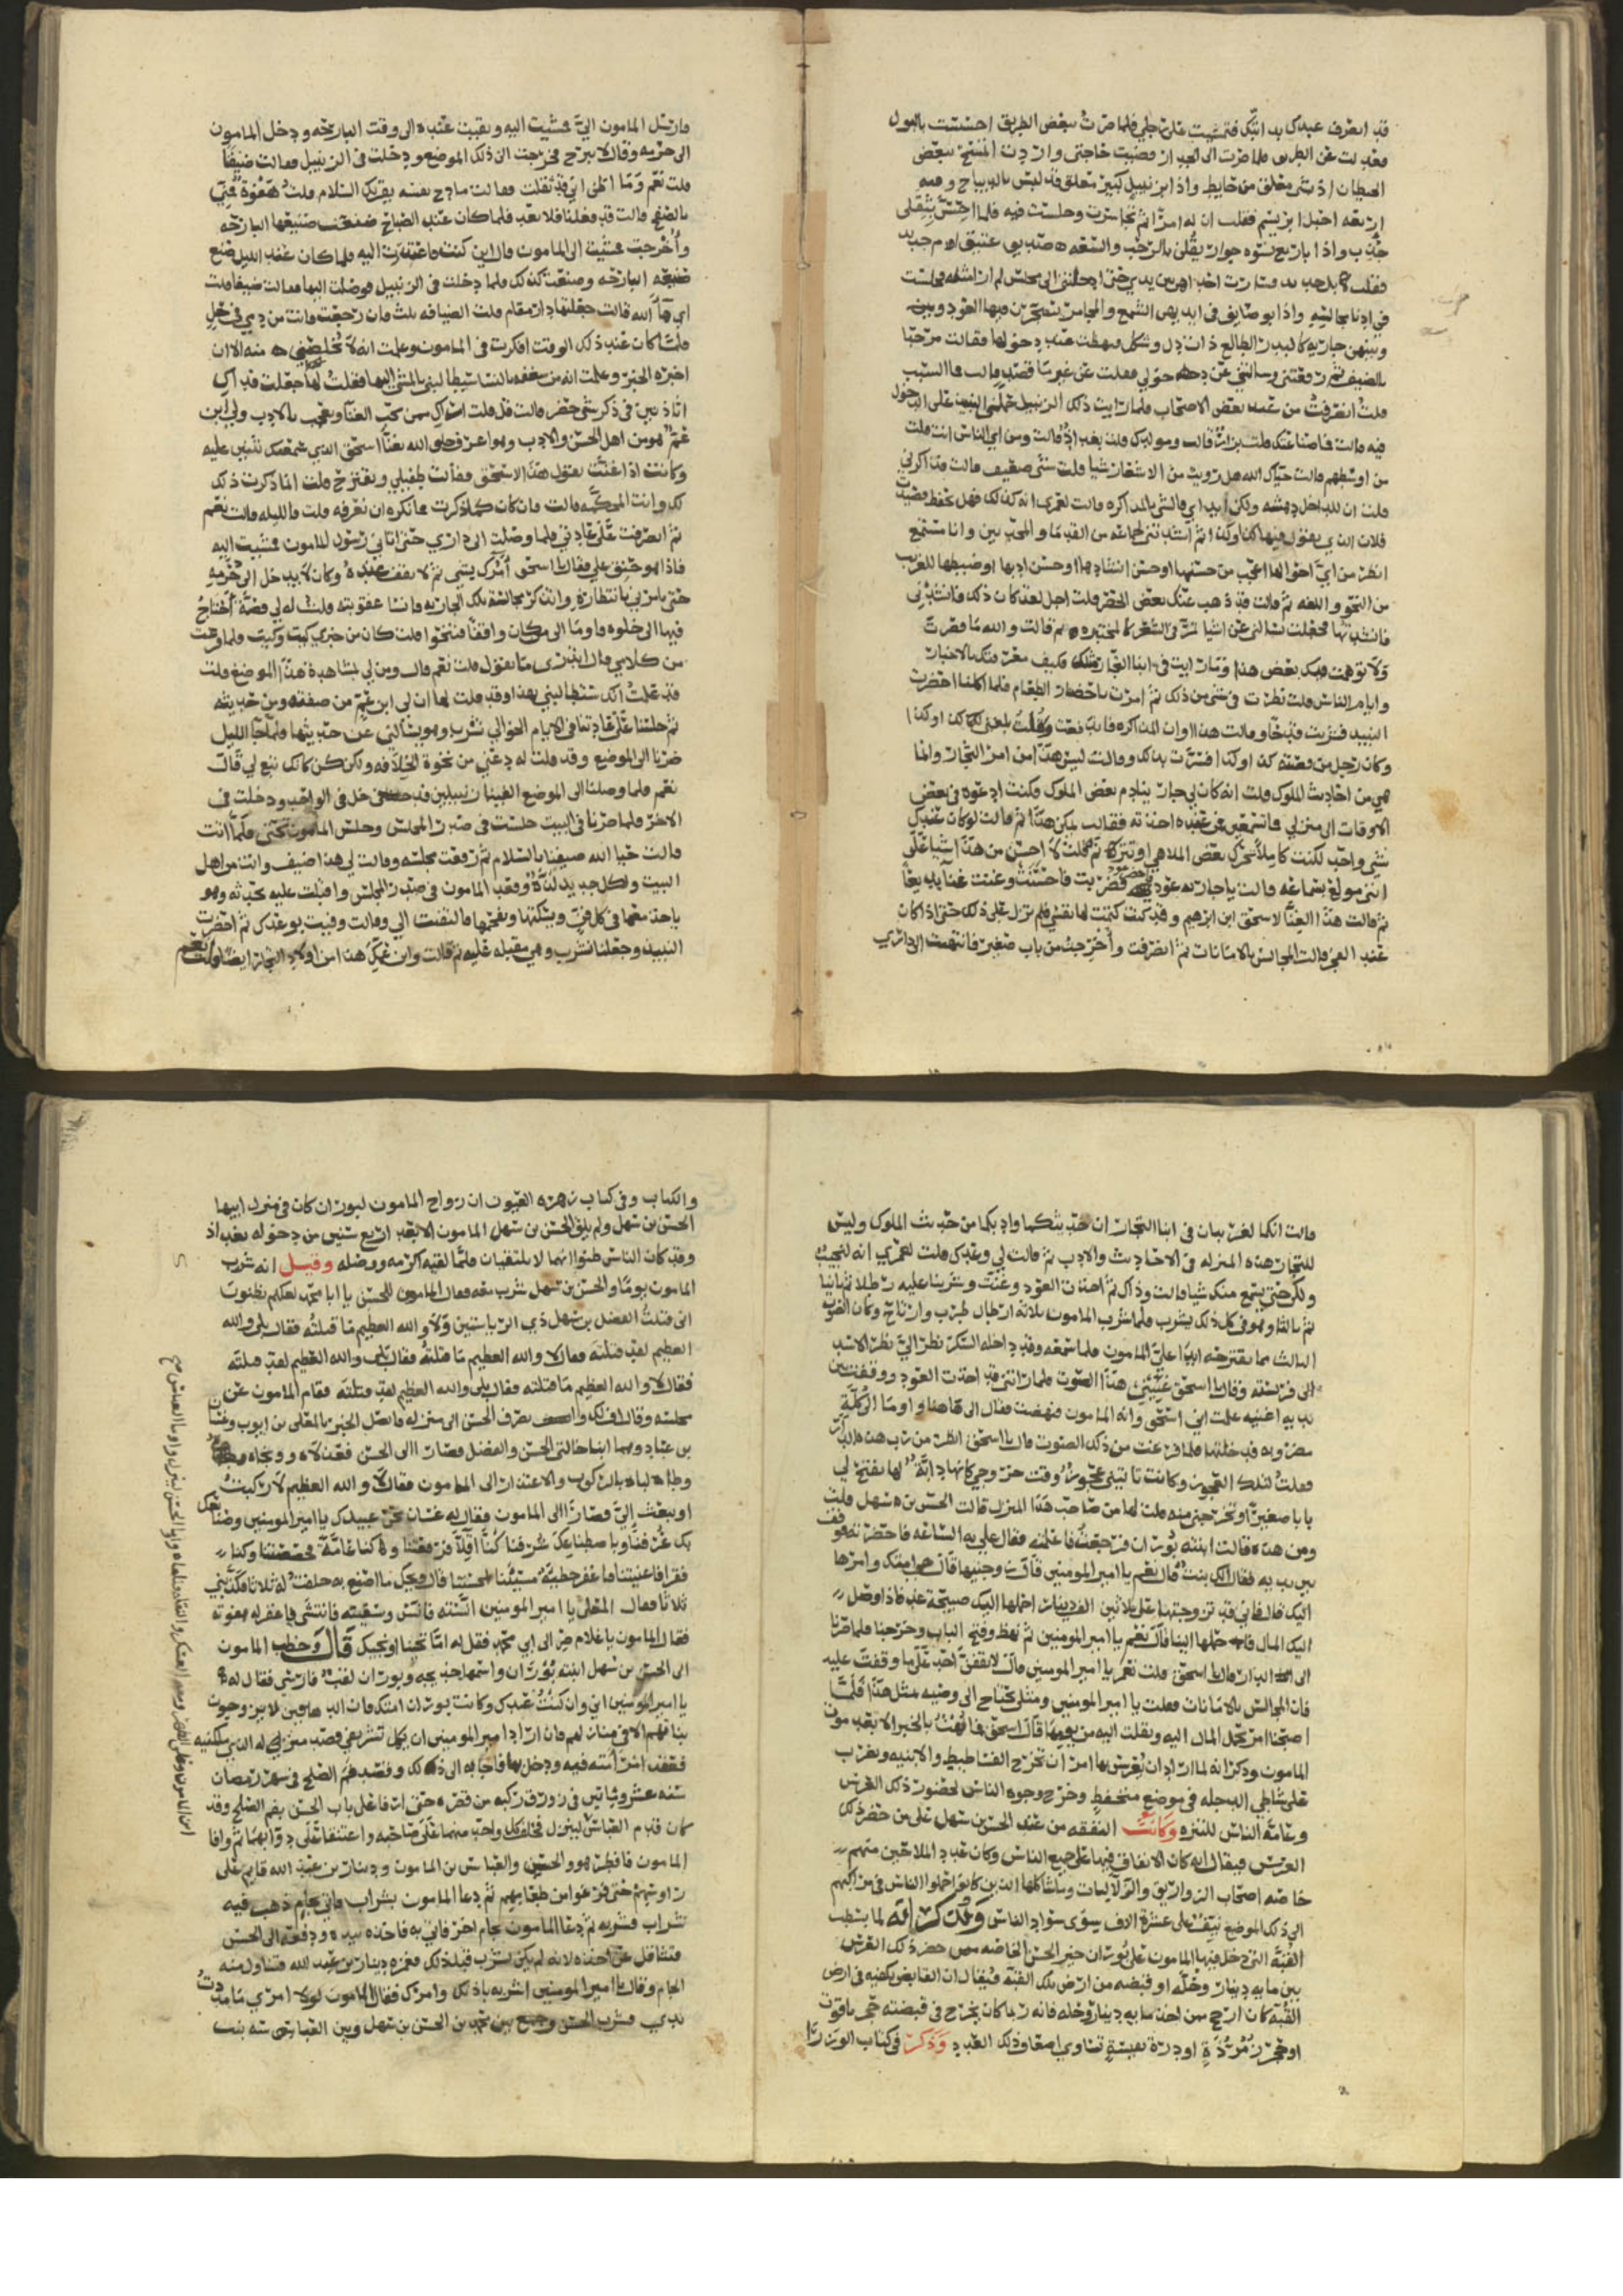 قد انصرف عبدك بدابتك فتمشيت على رجلي فلما صرت ببعض الطريق احسست بالبول
فعدلت عن الطريق فلما صرت الى الجدار قضيت حاجتي واردت المسح ببعض
الحيطان اذ بشي معلق من حايط واذا بزنبيل كبير معلق قد لبس بالديباج وفيه
اربعه احبل ابريسم فقلت ان له امرا ثم تجاسرت وجلست فيه فلما احس بثقلي
جذب واذا باربع نسوه جوار يقلن بالرحب والسعه صديق ام جديد
فقلت بل جديد فسارت احداهن بين يدي حتى ادخلتني الى مجلس لم ار مثله فجلست
في ادنا مجالسه واذا بوصايف في ايديهن الشمع والمجامر تسجر فيها العود وبينهن
جاريه كالبدر الطالع ذات دل وشكل فنهضت عند دخولها فقالت مرحبا
بالضيف ثم رفعتني وسالتني عن دخولي فقلت عن غير ما قصد قالت فما السبب
قلت انصرفت من عند بعض الاصحاب فلما رايت ذلك الزنبيل حملني النبيذ على الدخول
فيه قالت فما صناعتك قلت بزاز قالت ومولدك قلت بغداذ قالت ومن اي الناس انت قلت
من اوسطهم قالت حياك الله هل رويت من الاشعار شيا قلت شي ضعيف قالت فذاكرني
قلت ان للداخل دهشه ولكن ابدي فالشي بالمذاكره قالت لعمري انه كذلك فهل تحفظ قصيدة
فلان الذي يقول فيها كذا وكذا ثم انشدتني لجماعه من القدما والمحدثين وانا مستمع
انظر من اي احوالها اعجب من حسنها او حسن انشادها او حسن ادبها او ضبطها للغريب
من النحو واللغه ثم قالت قد ذهب عنك بعض الحصر قلت اجل لقد كان ذلك قالت فانشدني
فانشدتها فجعلت تسالني عن اشيا تمر في الشعر كالمختبره ثم قالت والله ما قصرت
ولا توهمت فيك بعض هذا وما رايت في ابنا التجار مثلك فكيف معرفتك بالاخبار
وايام الناس قلت نظرت في شي من ذلك ثم امرت باحضار الطعام فلما اكلنا احضرت
النبيذ فشربت قدحا وقالت هذا اوان المذاكره فاندفعت وقلت بلغني كذا وكذا
وكان رجل من قصته كذا وكذا فسرت بذلك وقالت ليس هذا من امر التجار وانما
هي من احاديث الملوك قلت انه كان لي جار ينادم بعض الملوك وكنت ادعوه في بعض
الاوقات الى منزلي فما تسمعين من عنده اخذته فقالت يمكن هذا ثم قالت لو كان عندك
شي واحد لكنت كاملا تحرك بعض الملاهي او تترنم قلت لا احسن من هذا شيا على
انني مولع بسماعه قالت يا جاريه عودي فاحضر فضربت فاحسنت وغنت غنا بديعا
ثم قالت هذا الغنا لاسحق ابن ابرهيم وقد كنت كتمت لها نفسي فلم نزل على ذلك حتى اذا كان
عند الفجر قالت المجالس بالامانات ثم انصرفت واخرجت من باب صغير فانتهيت الى داري
فارسل المامون الي فمشيت اليه وبقيت عنده الى وقت البارحه ودخل المامون
الى حرمه وقال لا تبرح فخرجت الى ذلك الموضع ودخلت في الزنبيل فقالت ضيفنا
قلت نعم وما اظن اني قد ثقلت فقالت مادح نفسه يقريك السلام قلت هفوة فمني
بالصفح قالت قد فعلنا فلا تعد فلما كان عند الصباح صنعت صنيعها البارحه
واخرجت فمشيت الى المامون وقال اين كنت فاعتذرت اليه فلما كان عند الليل صنع
صنيعه البارحه وصنعت كذلك فلما دخلت في الزنبيل فوصلت اليها فقالت ضيفنا قلت
اي ها الله قالت جعلتها دار مقام قلت الضيافه ثلث فان رجعت فانت من دمي في حل
فلما كان عند ذلك الوقت افكرت في المامون وعلمت انه لا يخلصني منه الا ان
اخبره الخبر وعلمت انه من شغفه بالنسا سيطالبني بالمشي اليها فقلت لها جعلت فداك
اتاذنين في ذكر شي حضر قالت قل قلت اراك ممن تحب الغنا وتعجب بالادب ولي ابن
عم هو من اهل الحسن والادب وهو اعرف خلق الله بغنا اسحق الذي سمعتك تثنين عليه
وكانت اذا غنت تقول هذا لاسحق فقالت طفيلي ويقترح قلت انما ذكرت ذلك
لك وانت المحكمه قالت فان كان كما ذكرت فما نكره ان نعرفه قلت فالليله قالت نعم
ثم انصرفت على عادتي فلما وصلت الى داري حتى اتاني رسول المامون فمشيت اليه
فاذا هو حنق علي فقال يا اسحق امرك بشي ثم لا تقف عنده وكان لا يدخل الى حرمه
حتى يامرني بانتظاره وانذكر مجالسة تلك الجاريه فانسا عقوبته قلت له لي قصة احتاج
فيها الى خلوه فاوما الى من كان واقفا فتنحوا قلت كان من خبري كيت وكيت فلما فرغت
من كلامي قال اتدري ما تقول قلت نعم قال ومن لي بمشاهدة هذا الموضع قلت
قد علمت انك ستطالبني بهذا وقد قلت لها ان لي ابن عم من صفته ومن حديثه
ثم جلسنا على عادتنا في الايام الخوالي نشرب وهو يسالني عن حديثها فلما جا الليل
صرنا الى الموضع وقد قلت له دعني من نخوة الخلافه ولكن كن كانك تبع لي قال
نعم فلما وصلنا الى الموضع الفينا زنبيلين فدخل في الواحد ودخلت في
الاخر فلما صرنا في البيت جلست في صدر المجلس وجلس المامون تحتي فلما اتت
قالت حيا الله ضيفنا بالسلام ثم رفعت مجلسه وقالت لي هذا ضيف وانت من اهل
البيت ولكل جديد لذة وقعد المامون في صدر المجلس واقبلت عليه تحدثه وهو
ياخذ معها في كل فن ويسكتها ويفحمها فالتفتت الي وقالت وفيت بوعدك ثم احضرت
النبيذ وجعلنا نشرب وهي مقبله عليه ثم قالت وابن عمك هذا من اولاد التجار ايضا قلت نعم
قالت انكما لغريبان في ابنا التجار ان حديثكما وادبكما من حديث الملوك وليس
للتجار هذه المنزله في الاحاديث والادب ثم قالت لي وعدك قلت لعمري انه لنجيب
ولكن حتى يسمع منك شيا قالت وذاك ثم اخذت العود وغنت وشربنا عليه رطلا ثم ثانيا
ثم ثالثا وهو في كل ذلك يشرب فلما شرب المامون ثلاثه ارطال طرب وارتاح وكان الصوت
الثالث مما يقترحه ابدا علي المامون فلما سمعه وقد داخله السكر نظر الي نظر الاسد
الى فريسته وقال يا اسحق غنني هذا الصوت فلما راتني قد اخذت العود ووقفت بين
يديه اغنيه علمت اني اسحق وانه المامون فنهضت فقال الى ها هنا واوما الى كلة
مضروبه فدخلتها فلما فرغت من ذلك الصوت قال يا اسحق انظر من رب هذه الدار
فقلت لتلك العجوز وكانت تاتيني عجوز وقت خروجي كانها داية لها تفتح لي
بابا صغيرا وتخرجني منه قلت لها من صاحب هذا المنزل قالت الحسن بن سهل قلت
ومن هذه قالت ابنته بوران فرجعت فاعلمته فقال علي به الساعه فاحضرته فوقف
بين يديه فقال الك بنت قال نعم يا امير المومنين قال زوجنيها قال هي امتك وامرها
اليك قال فاني قد تزوجتها على ثلاثين الف دينار احملها اليك صبيحة غد فاذا وصل
اليك المال فاحملها الينا قال نعم يا امير المومنين ثم نهض وفتح الباب وخرجنا فلما صرنا
الى الدار قال يا اسحق قلت نعم يا امير المومنين قال لا تقفن احدا على ما وقفت عليه
فان المجالس بالامانات فقلت يا امير المومنين ومثلي يحتاج الى وصيه بمثل هذا فلما
اصبحنا امر بحمل المال اليه ونقلت اليه من يومها قال اسحق فما فهت بالخبر الا بعد موت
المامون وذكر انه لما اراد ان يعرس بها امر ان تخرج الفساطيط والابنيه وتضرب
على شاطي الدجله في موضع منخفض وخرج وجوه الناس لحضور ذلك العرس
وعامة الناس للنزه وكانت النفقه من عند الحسن بن سهل على من حضر ذلك
العرس فيقال انه كان الانفاق فيها على جميع الناس وكان عدد الملاحين منهم
خاصه اصحاب الزواريق والزلاليات وما شاكلها الذين كانوا حملوا الناس في مراكبهم
الى ذلك الموضع نيف على عشرة الاف سوى سواد الناس وذكر انه لما بسطت
القبة التي دخل فيها المامون على بوران خير الحسن الخاصه ممن حضر ذلك العرس
بين مايه دينار وخله او قبضه من ارض تلك القبه فيقال ان القابض بكفيه في ارض
القبة كان ارجح ممن اخذ مايه دينار وخله فانه ربما كان يخرج في قبضته حجر ياقوت
او حجر زمرذة او درة نفيسة تساوي اضعاف ذلك العدد وذكر في كتاب الوزرا
والكتاب وفي كتاب نزهة العيون ان زواج المامون لبوران كان في منزل ابيها
الحسن بن سهل ولم يلق الحسن بن سهل المامون الا بعد اربع سنين من دخوله بغداذ
وقد كان الناس ظنوا انهما لا يلتقيان فلما لقيه اكرمه ووصله وقيل انه شرب
المامون يوما والحسن بن سهل شرب معه فقال المامون للحسن يا ابا محمد لعلكم تظنون
اني قتلت الفضل بن سهل ذي الرياستين ولا والله العظيم ما قتلته فقال بلى والله
العظيم لقد قتلته فقال لا والله العظيم ما قتلته فقال بلى والله العظيم لقد قتلته
فقال لا والله العظيم ما قتلته فقال بلى والله العظيم لقد قتلته فقام المامون عن
مجلسه وقال اف لك وانصرف الحسن الى منزله فاتصل الخبر بالمعلى بن ايوب وغسان
بن عباد وهما ابنا خالتي الحسن والفضل فصارا الى الحسن فعذلاه ووبخاه
وطالباه بالركوب والاعتذار الى المامون فقال لا والله العظيم لا ركبت
او يبعث الي فصارا الى المامون فقال له غسان نحن عبيدك يا امير المومنين وصنايعك
بك عرفنا وباصطناعك شرفنا كنا اذلا فرفعتنا وكنا غامة فخصصتنا وكنا
فقرا فاغنيتنا فاغفر خطية مسيئنا لمحسننا قال ويحك ما اصنع به حلفت له ثلاثا فكذبني
ثلاثا فقال المعلى يا امير المومنين انسته فانس وسقيته فانتشى فاغفر له هفوته
فقال المامون يا غلام مر الى ابي محمد فقل له اما تجينا او نجيك قال وخطب المامون
الى الحسن بن سهل ابنته بوران واسمها خديجه وبوران لقب فارتبى فقال له
يا امير المومنين اني وان كنت عبدك وكانت بوران امتك فان الدهاقين لا يزوجون
بناتهم الا في منازلهم فان اراد امير المومنين ان يكمل تشريفي قصد منزلي له الذي يسكنيه
فعقد امراته فيه ودخل بها فاجابه الى ذلك وقصد فم الصلح في شهر رمضان
سنه عشر ومايتين في زورق ركبه من قصره حتى ارفا على باب الحسن بفم الصلح وقد
كان قدم العباس لينزل فحلف كل واحد منهما على صاحبه واعتنقا على دوابهما ثم وافا
المامون فافطر هو والحسن والعباس بن المامون ودينار بن عبد الله قايم على
راوسهم حتى فرغوا من طعامهم ثم دعا المامون بشراب فاتي بجام ذهب فيه
شراب فشربه ثم دعا المامون بجام اخر فاتي به فاخذه بيده ودفعه الى الحسن
فتثاقل عن اخذه لانه لم يكن يشرب قبل ذلك فغمزه دينار بن عبد الله فتناول منه
الجام وقال يا امير المومنين اشربه باذنك وامرك فقال المامون لولا امري ما مددت
يدي فشرب الحسن وجمع بين محمد بن الحسن بن سهل وبين العباسه بنت